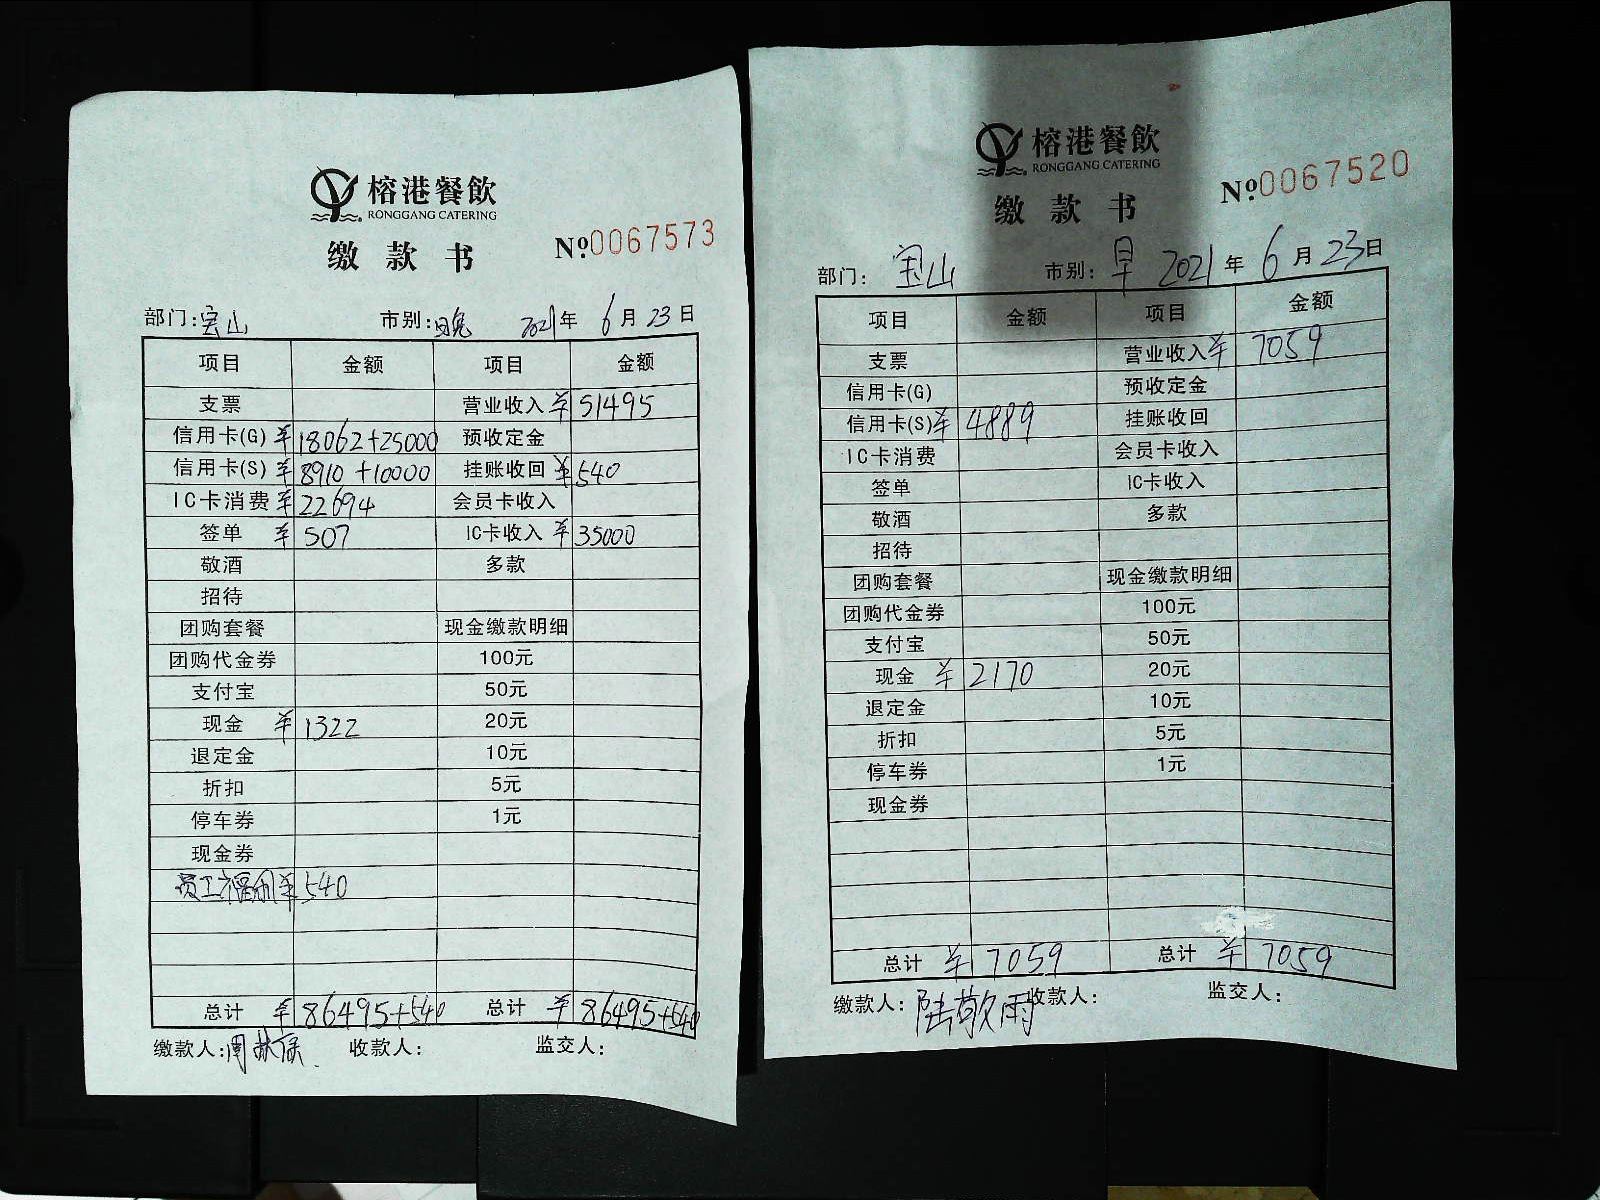 榕港餐飲
RONGGANG CATERING
缴款书
№0067573
部门:宝山 市别:晚 2021年6月23日
项目 金额 项目 金额
支票 营业收入 ¥51495
信用卡(G) ¥18062+25000 预收定金
信用卡(S) ¥8910+10000 挂账收回 ¥540
IC卡消费 ¥22694 会员卡收入
签单 ¥507 IC卡收入 ¥35000
敬酒 多款
招待
团购套餐 现金缴款明细
团购代金券 100元
支付宝 50元
现金 ¥1322 20元
退定金 10元
折扣 5元
停车券 1元
现金券
员工福利 ¥540
总计 ¥86495+540 总计 ¥86495+540
缴款人: 收款人: 监交人:
榕港餐飲
RONGGANG CATERING
缴款书
№0067520
部门:宝山 市别:早 2021年6月23日
项目 金额 项目 金额
支票 营业收入 ¥7059
信用卡(G) 预收定金
信用卡(S) ¥4889 挂账收回
IC卡消费 会员卡收入
签单 IC卡收入
敬酒 多款
招待
团购套餐 现金缴款明细
团购代金券 100元
支付宝 50元
现金 ¥2170 20元
退定金 10元
折扣 5元
停车券 1元
现金券
总计 ¥7059 总计 ¥7059
缴款人:陆敬雨 收款人: 监交人: